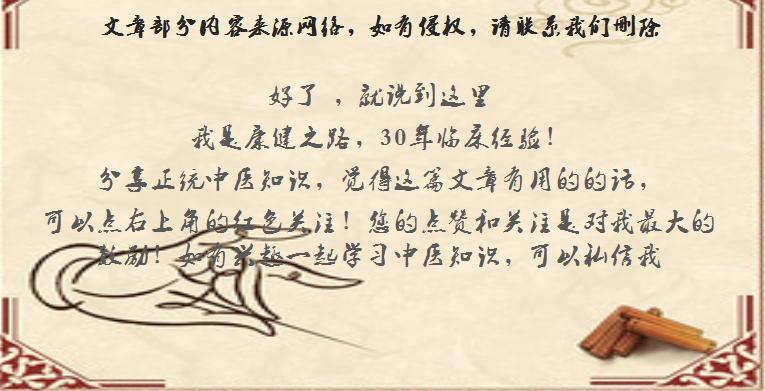 文章部分内容来源网络，如有侵权，请联系我们删除
好了 ，就说到这里
我是康健之路，30年临床经验！
分享正统中医知识，觉得这篇文章有用的的话，
可以点右上角的红色关注！您的点赞和关注是对我最大的
鼓励！如有兴趣一起学习中医知识，可以私信我